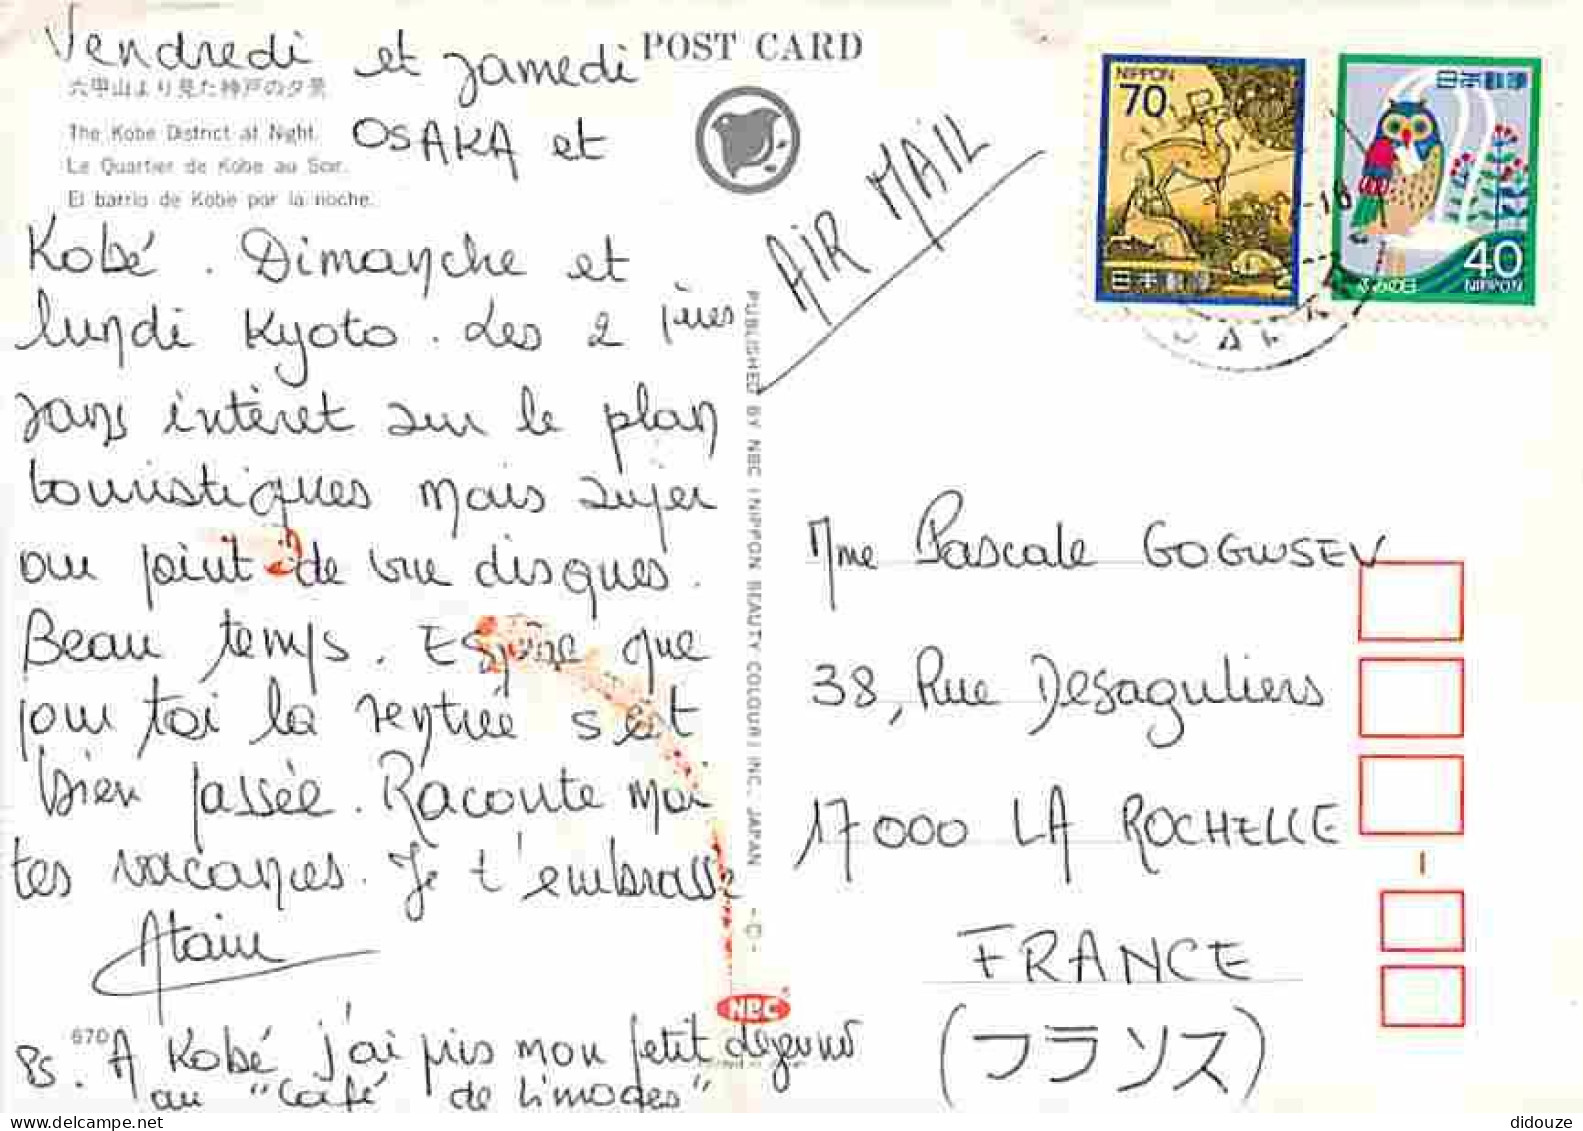 Vendredi et samedi
POST CARD
六甲山より見た神戸の夕景
The Kobe District at Night.
OSAKA et
Le Quartier de Kobe au Soir.
El barrio de Kobe por la noche.
Kobé. Dimanche et
lundi Kyoto. Les 2 1ères
sans intèret sur le plan
touristiques mais super
au point de vue disques.
Beau temps. Espère que
pour toi la rentrée s'est
bien passée. Raconte moi
tes vacances. Je t'embrasse
Alain
670
PS. A Kobé j'ai pris mon petit dejeuner
au "Café de Limoges"
PUBLISHED BY NBC (NIPPON BEAUTY COLOUR) INC. JAPAN
-C-
NBC
AIR MAIL
NIPPON
70
日本郵便
日本郵便
40
ふみの日 NIPPON
Mme Pascale GOGUSEV
38, Rue Desaguliers
17000 LA ROCHELLE
FRANCE
(フランス)
didouze